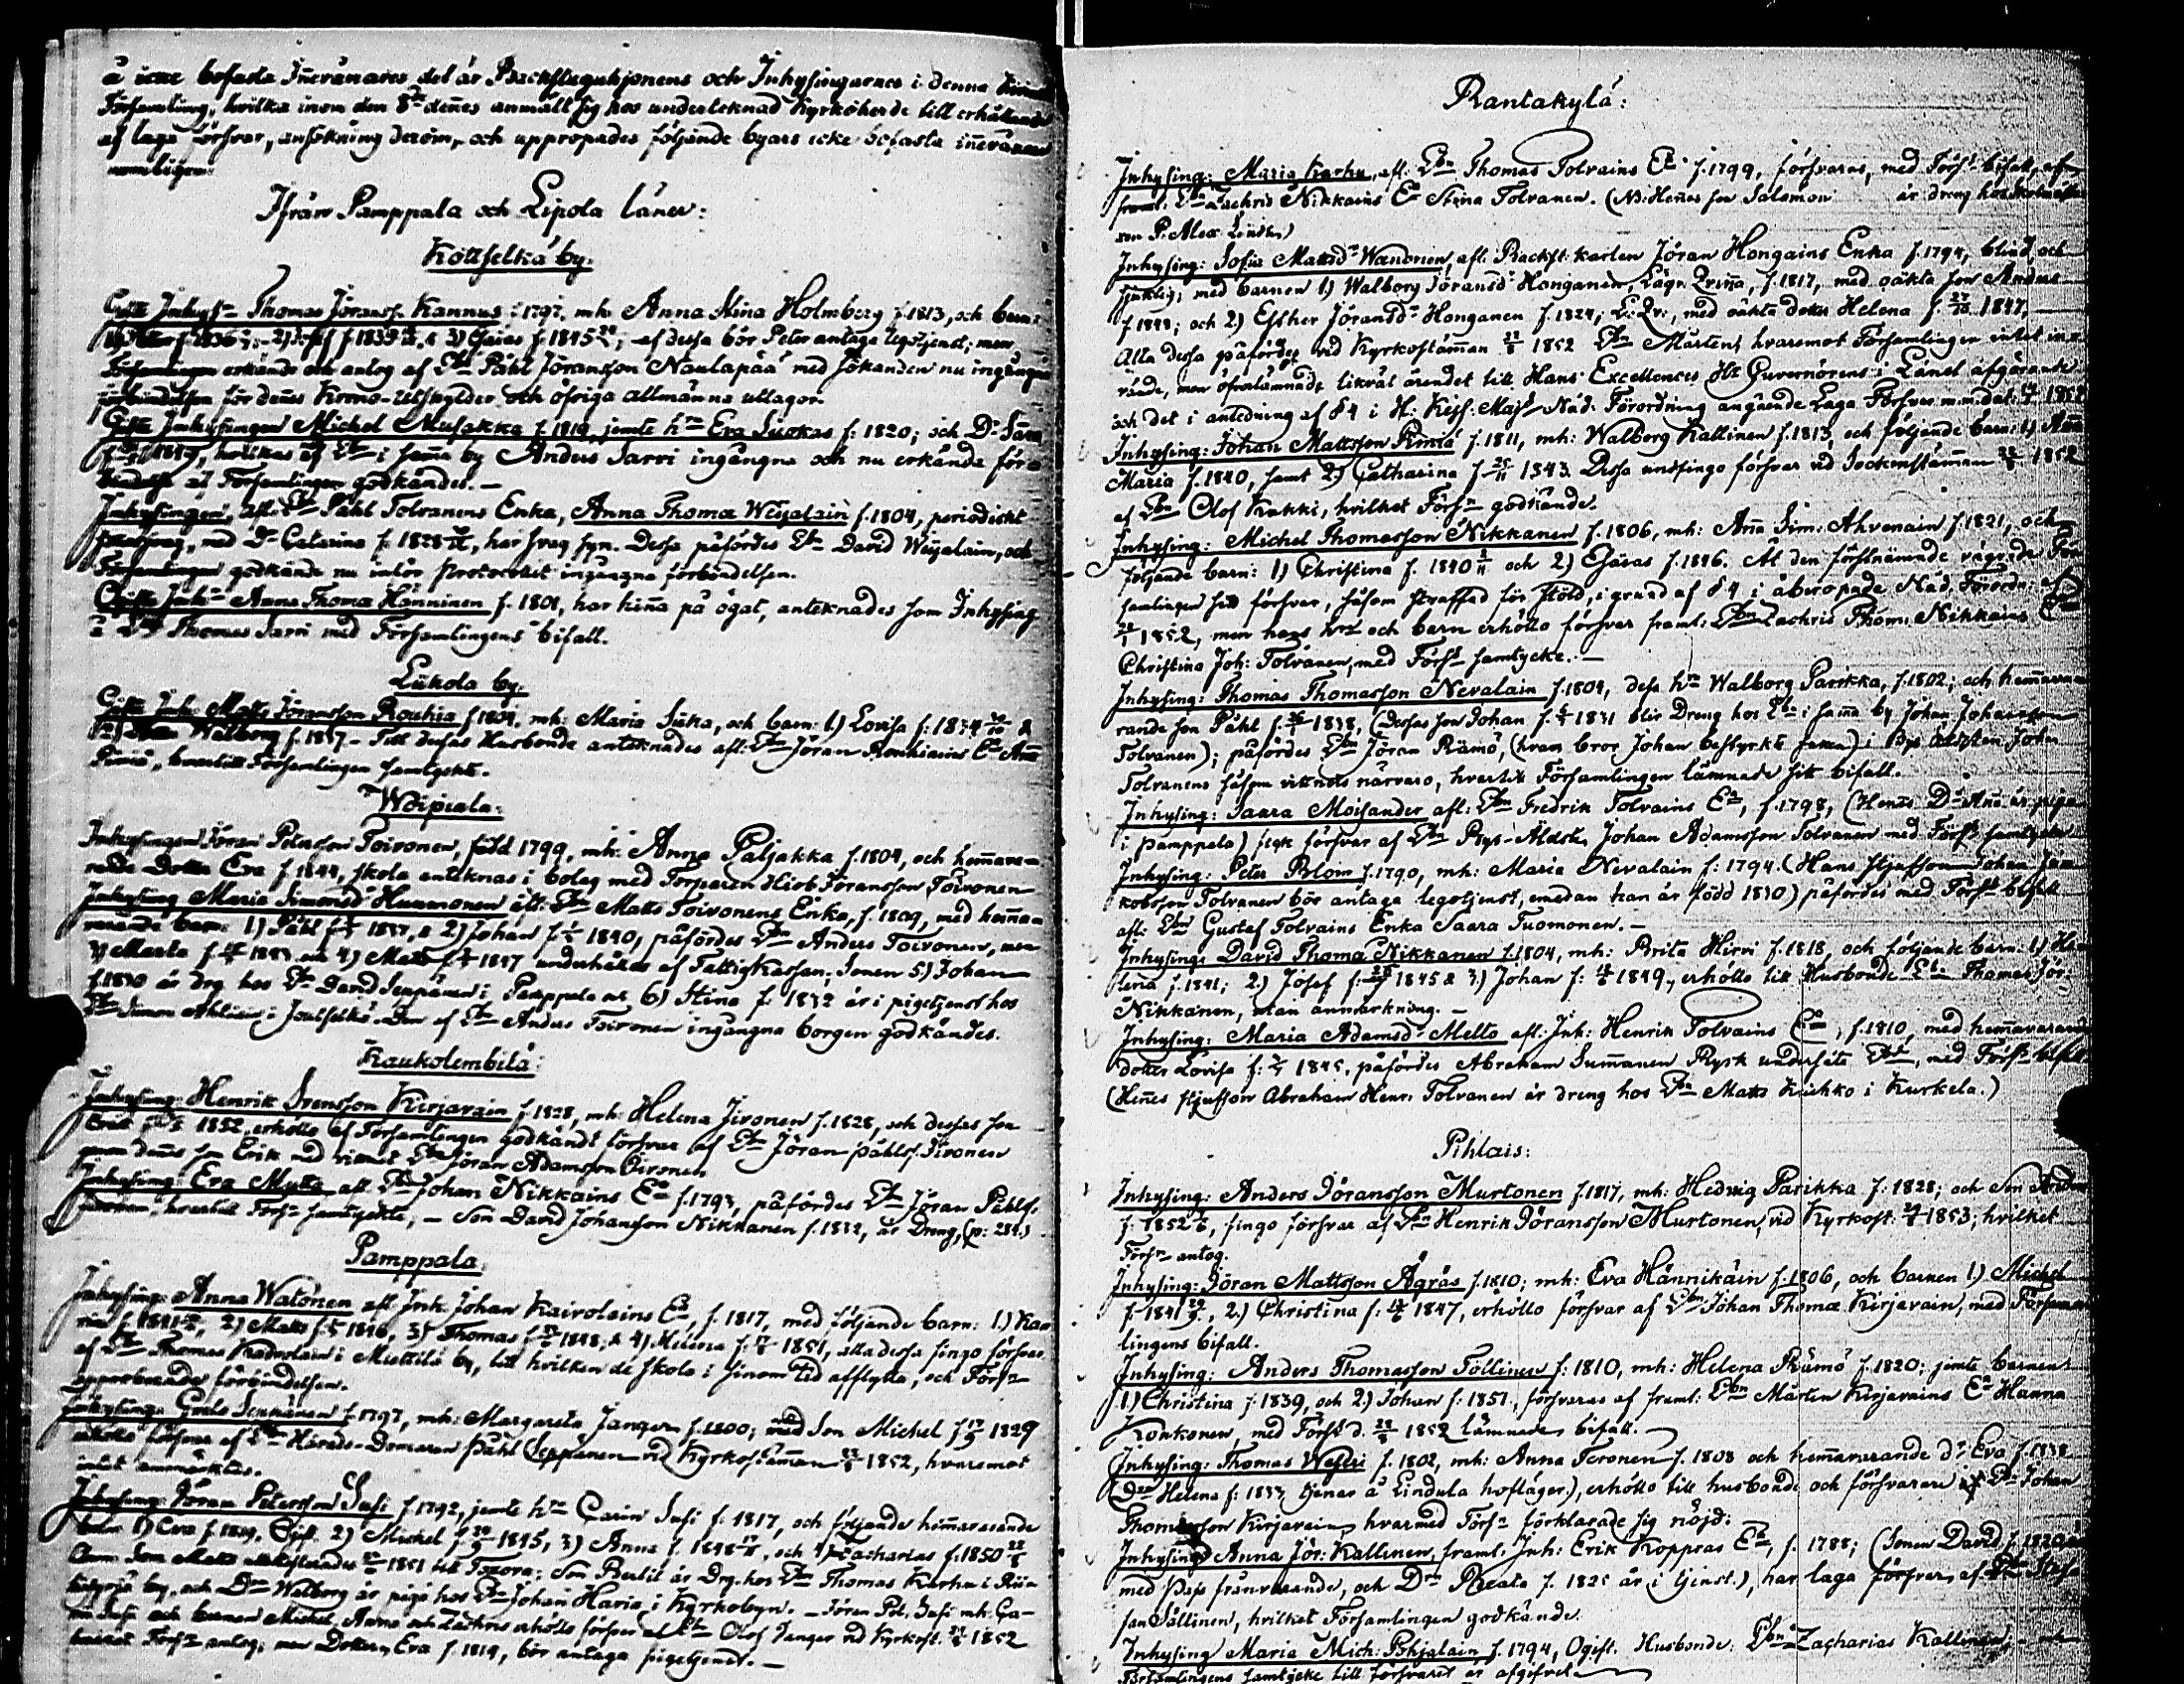 å icke bofasta Inevånares, det är Backstuguhjonens och Inhysingarnes i denna
Församling, hvilka inom den 8de dennes anmält sig hos undertecknad Kyrkoherde till erhållande
af laga försvar, ansökning derom, och uppropades följande byars icke bofasta inevånare
nemligen:
Ifrån Pamppala och Lipola läner:
Kottselkä by.
Gifte Inhys: Thomas Jöranss. Kannus f. 1797, mh: Anna Stina Holmberg f. 1813, och barn:
f 1836; 2) f 1839 & 3) Esaias f 1845; af dessa bör Peter antaga legotjenst; men
Församlingen erkände och antog af Lbn Påhl Jöransson Naulapää med sökanden nu ingångna
förbindelsen för dennes Krono-utskylder och öfriga allmänna utlagor.
Gifte Inhysingen Michel Musakka f. 1819, jemte hu Eva Suokas f: 1820; och Dr
1849, hvilkas af Lbn i samma by Anders Sarvi ingångna och nu erkända för-
bindelse af Församlingen godkändes. —
Inhysingen, afl: Lbn Påhl Tolvanens Enka, Anna Thomæ Weijalain f. 1804, periodiskt
med Dr Catarina f. 1828, har svag syn. Dessa påfördes Lbn David Weijalain, och
Församlingen godkände nu inför Protocollet ingångna förbindelsen.
Inh: Anna Thomæ Hänninen f. 1801, har hinna på ögat, antecknades som Inhysing
å Lbn Thomas Sarvi med Församlingens bifall.
Lükola by.
Gifte Inh: Matts Jöransson Rouhia f 1804, mh: Maria Suka, och barn: 1) Lovisa f. 1834 &
2) Walborg f. 1837 – Till dessas Husbonde antecknades afl: Lbn Jöran Rouhiains Ea
Piniä, hvartill Församlingen samtyckte.
Woipiala:
Inhysingen Jöran Petersson Toivonen, född 1799, mh: Anna Paljakka f. 1804, och hemmava-
rande Dotter Eva f. 1844, skola antecknas i bolag med Torparen Hiob Jöransson Toivonen
Inhysing Maria Simonsdr Hummonen afl: Lbn Matts Toivonens Enka, f. 1809, med hemma-
varande barn: 1) Påhl f 1837, & 2) Johan f. 1840, påfördes Lbn Anders Toivonen, men
3) Maria f. 1843 och 4) Matts f 1847 underhållas af Fattigkassan; Sonen 5) Johan
f. 1830 är drg hos Lbn David Seppänen i Pamppala och 6) Stina f. 1832 är i pigetjenst hos
Lbn Simon Ahläin i Joutselkä. Den af Lbn Anders Toivonen ingångna borgen godkändes.
Kaukolembilä:
Inhysing: Henrik Svensson Kirjavain f. 1828, mh: Helena Jivonen f. 1828, och dessas son
Erik 1852, erhöllo af Församlingen godkändt försvar af Lbn Jöran Påhlss. Jivonen
son Erik med vittnet Lbn Jöran Adamsson Oivonen.
Inhysing: Eva Mylla afl. Lbn Johan Nikkains Ea f. 1793, påfördes Lbn Jöran Påhlss.
hvartill Försn samtyckte; – Son David Johansson Nikkanen f. 1832, är Dreng, (p: 284.)
Pamppala:
Inhysing: Anna Watonen afl Inh. Johan Kaivolains Ea, f. 1817, med följande barn: 1.)
f. 1841, 2) Matts f. 1846, 3) Thomas f. 1848 & 4) Helena f. 1851, alla dessa fingo försvar
af Lbn Thomas Kaivolain i Miettilä by, till hvilken de skola i sinom tid afflytta, och Försn
approberade förbindelsen.
Inhysing: Seppänen f. 1797, mh: Margareta Janger f. 1800; med Son Michel f 1829
erhöllo försvar af Härads-Domaren Påhl Seppänen vid Kyrkostämman 1852, hvaremot
intet anmärktes.
Inhysing: Jöran Petersson Susi f. 1792, jemte hu Carin Susi f. 1817, och följande hemmavarande
barn 1) Eva f. 1819. Ogift. 2) Michel f 1845, 3) Anna f. 1848, och 4) Zacharias f. 1850
Son Matts 1851 till Toxova; Son Bertil är Drg. hos Lbn Thomas Karhu i
by, och Dr Walborg är piga hos Lbn Johan Havia, i Kyrkobyn. – Jöran Pet. Susi mh: Ca-
Susi och barnen Michel, Anna och Zachris erhöllo försvar af Lbn Olof Janger vid Kyrkost. 1852
Försn antog; men Dottern Eva f. 1819, bör antaga pigetjenst. —
Rantakylä:
Inhysing: Maria Karhu, afl: Lbn Thomas Tolvains Ea f. 1799, försvaras, med Försns bifall, af
framl: Lbn Zachris Nikkains Ea Stina Tolvanen. (NB: Hennes son Salomon är dreng hos
P. Alex. Linder)
Inhysing: Sofia Mattsdr Wänönen, afl: Backst. karlen Jöran Hongains Enka f. 1794, blind och
sjuklig; med barnen 1) Walborg Jöransdr Honganen, Läg. Qvinna, f. 1817, med oäkta son Anders
f. 1848; och 2) Esther Jöransdr Honganen f. 1824; L: Qv:, med oäkta dotter Helena f. 1847,
Alla dessa påfördes vid Kyrkostämman 1852 Lbn Mårten, hvaremot Församlingen intet in-
vände, men öfverlämnade likväl ärendet till Hans Excellences Hr Guvernörens i Länet afgörande
och det i anledning af § 4 i H: Kejs: Majts Nåd. Förordning angående Laga Försvar m.m. dat: 1852
Inhysing: Johan Mattsson Piniä f. 1811, mh: Walborg Kallinen f. 1813, och följande barn: 1)
Maria f. 1840, samt 2) Catharina f. 1843. Dessa undfingo försvar vid Sockenstämman 1852
af Lbn Olof Kukki, hvilket Försn godkände.
Inhysing: Michel Thomasson Nikkanen f. 1806, mh: Anna Sim: Ahvenain f. 1821, och
följande barn: 1) Christina f. 1840 och 2) Esaias f. 1846. Åt den förstnämnde vägrade För-
samlingen försvar, såsom straffad för stöld, i grund af § 4 i åberopade Nåd. Förordn: af
1852, men hans hu och barn erhöllo försvar framl: Lbn Zachris Thom: Nikkains Ea
Christina Joh: Tolvanen, med Försns samtycke. —
Inhysing: Thomas Thomasson Nevalain f. 1804, dess hu Walborg Parikka, f. 1802; och hemmava-
rande son Påhl f. 1838, (Dessas son Johan f. 1831 blir Dreng hos Lbn i samma by Johan Johansson
Tolvanen); påfördes Lbn Jöran Rämö, (hvars bror Johan bestyrkte saken) i Bys äldsten Johan
Tolvanens såsom vittnets närvaro, hvartill Församlingen lämnade sitt bifall.
Inhysing: Saara Moisander afl: Lbn Fredrik Tolvains Ea, f. 1798, (Hennes Dr Anna är piga
i Pamppala) fick försvar af Lbn Bys-Äldsten Johan Adamsson Tolvanen med Försns samtycke
Inhysing: Peter Blom f. 1790, mh: Maria Nevalain f. 1794. (Hans stjufson Johan Ja-
kobsson Tolvanen bör antaga legotjenst, emedan han är född 1830) påfördes med Försns bifall
afl: Lbn Gustaf Tolvains Enka Saara Tuomonen. —
Inhysing: David Thomæ Nikkanen f. 1804, mh: Brita Hirvi f. 1818, och följande barn: 1) He-
lena f. 1841; 2) Josef f. 1845 & 3) Johan f: 1849, erhöllo till Husbonde Lbn Thomas Jör:
Nikkanen, utan anmärkning. —
Inhysing: Maria Adamsdr Mello afl: Inh: Henrik Tolvains Ea, f. 1810, med hemmavarande
dotter Lovisa f: 1845, påfördes Abraham Summanen Rysk undersåte, med Försns bifall
(Hennes stjufson Abraham Henr: Tolvanen är dreng hos Lbn Matts Kiuhko i Kurkela.)
Pihlais:
Inhysing: Anders Jöransson Murtonen f. 1817, mh: Hedvig Parikka f: 1828; och Son
f: 1852, fingo försvar af Lbn Henrik Jöransson Murtonen, vid Kyrkost: 1853; hvilket
Försn antog.
Inhysing: Jöran Mattsson Ägräs f. 1810; mh: Eva Hännikäin f. 1806, och barnen 1) Michel
f: 1841, 2.) Christina f: 1847, erhöllo försvar af Lbn Johan Thomæ Kirjavain, med Försam-
lingens bifall.
Inhysing: Anders Thomasson Töllinen f: 1810, mh: Helena Rämö f. 1820; jemte barnen
1) Christina f: 1839, och 2) Johan f: 1851, försvaras af framl: Lbn Mårten Kirjavains Ea Hanna
Konkonen, med Försns d. 1852 lämnade bifall. —
Inhysing: Thomas Weseri f. 1802, mh: Anna Teronen f. 1808 och hemmavarande dr Eva f. 1838
(Drn Helena f: 1833 tjenar å Lindula hofläger), erhöllo till husbonde och försvarare Lbn Johan
Thomasson Kirjavain, hvarmed Försn förklarade sig nöjd.
Inhysing Anna Jör: Kallinen framl: Inh: Erik Kopperas Ea, f. 1788; (Sonen David f. 1820
med Pass frånvarande, och Drn Beata f. 1825 är i tjenst.), har laga försvar af Lbn
Sällinen, hvilket Församlingen godkände.
Inhysing Maria Mich: Pohjalain f. 1794, Ogift. Husbonde: Lbn Zacharias Kallinen,
Församlingens samtycke till försvaret är afgifvet.